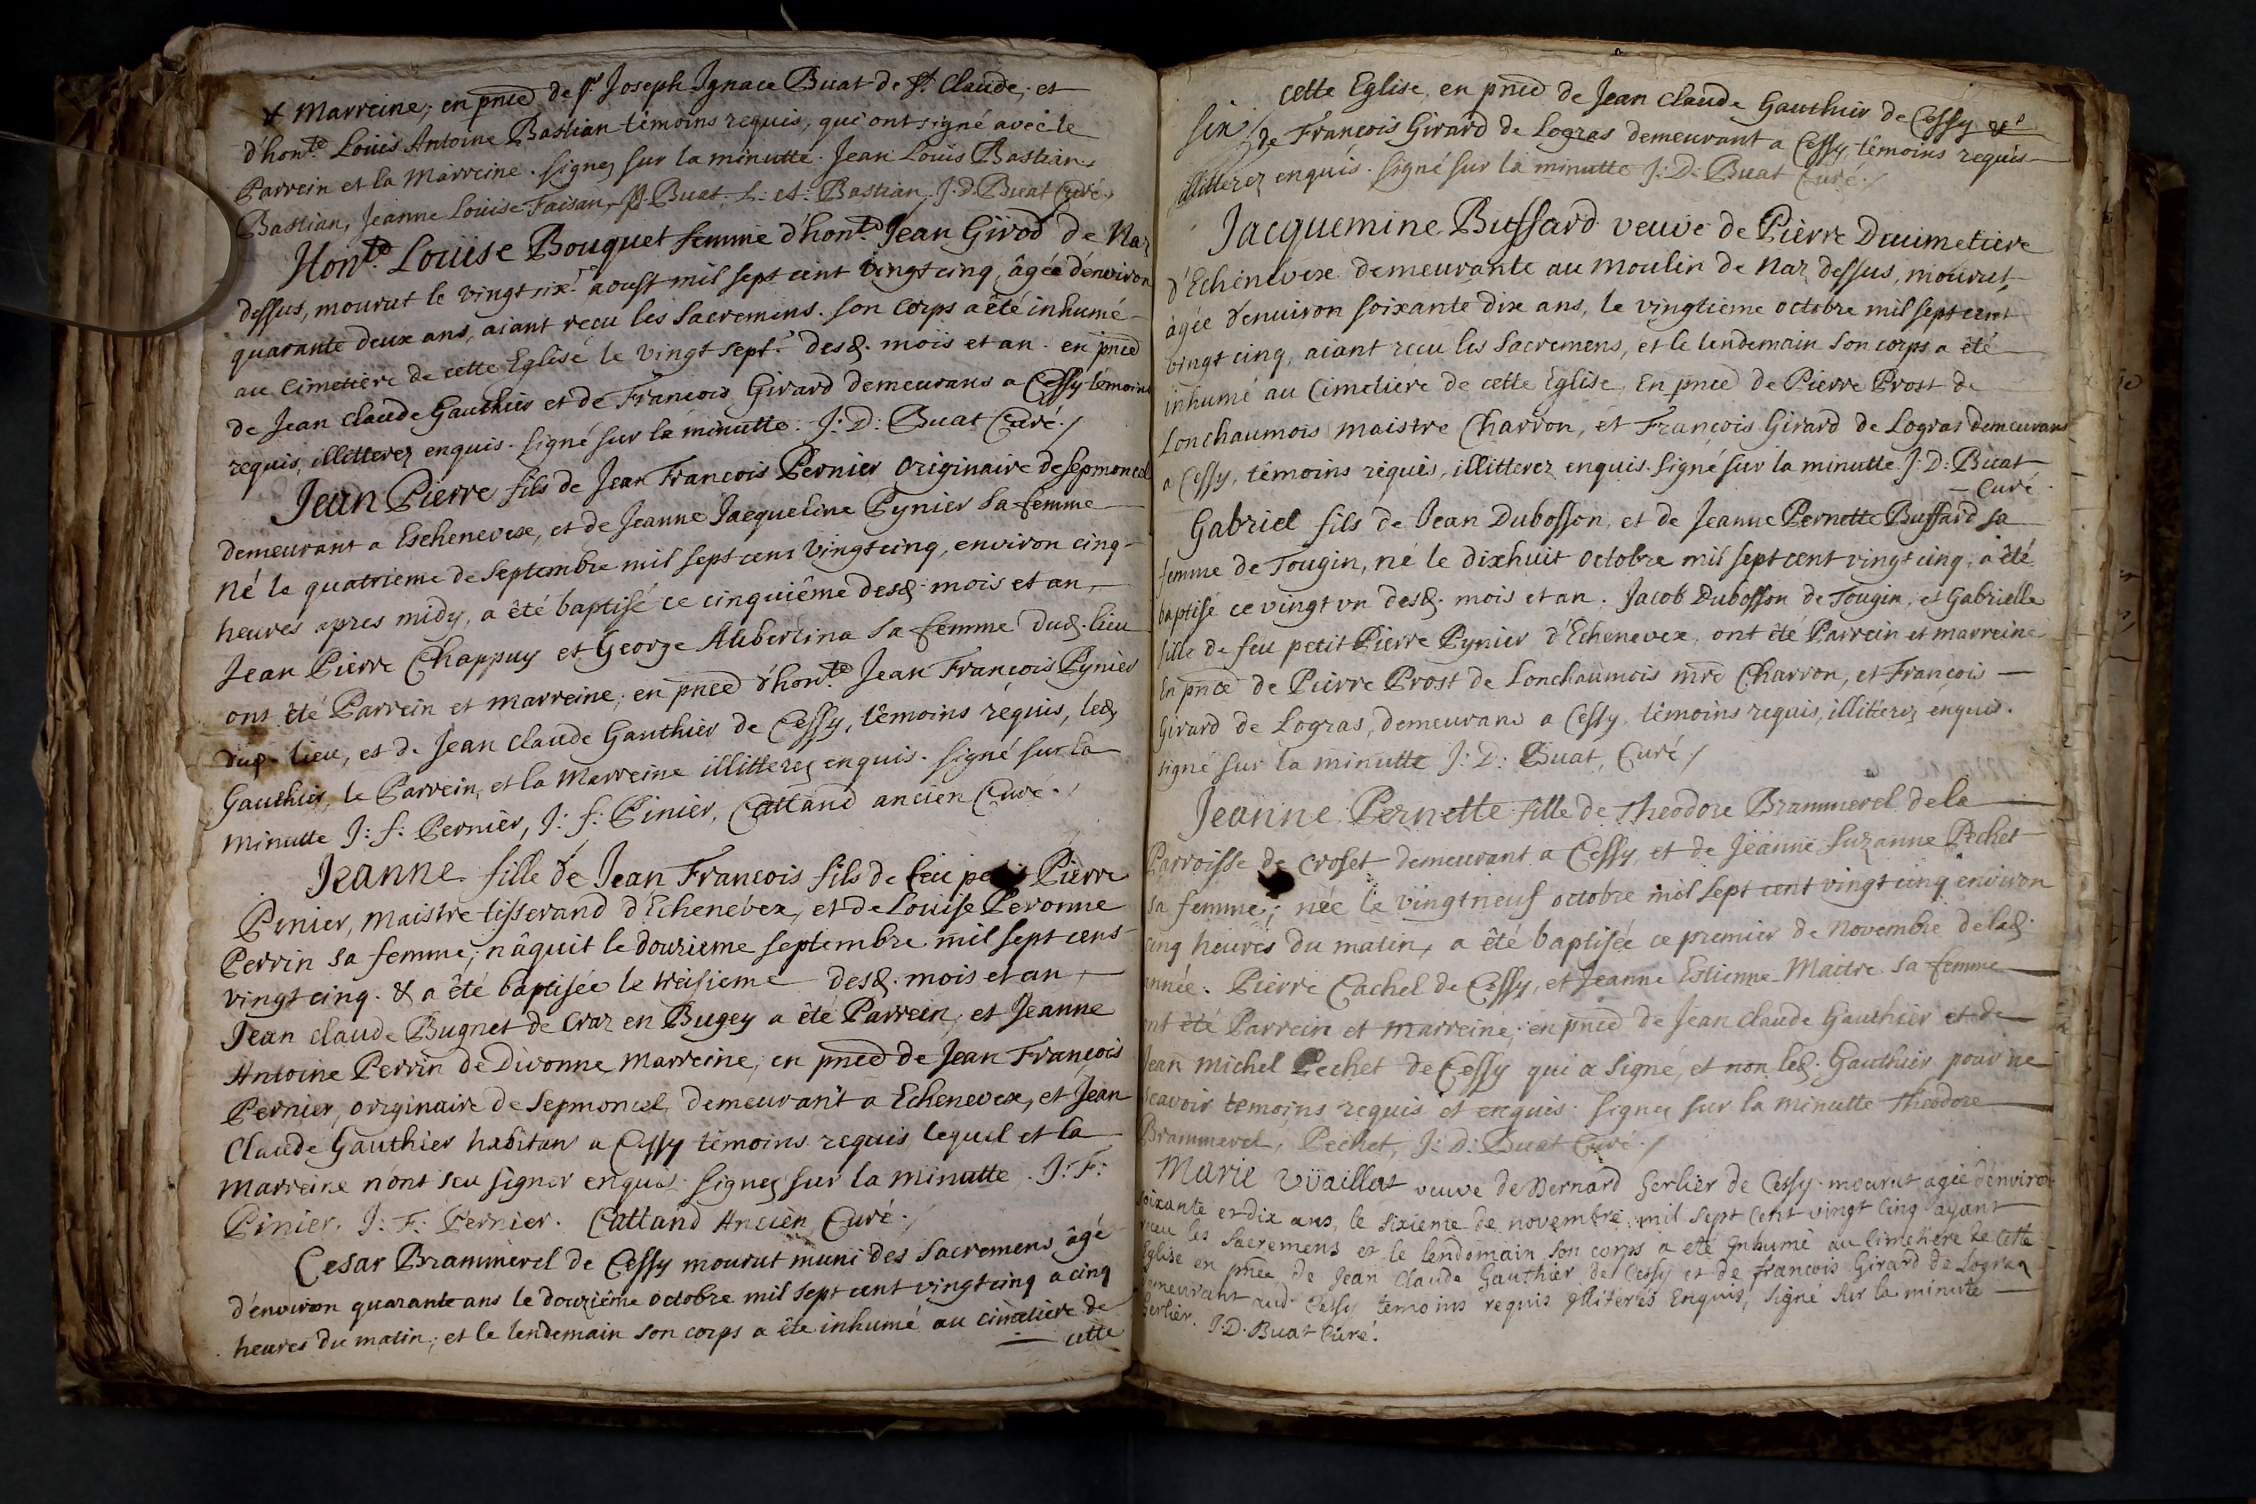 & Marreine; en pnce de Sr Joseph Ignace Buat de St Claude, et
d'honte Loüis Antoine Bastian têmoins requis, qui ont signé avec le
Parrein et la Marreine. signez sur la minutte. Jean Loüis Bastian,
Bastian, Jeanne Loüise Faisan, Buat. L: A: Bastian, J: D. Buat Curé.
Honte Loüise Bouquet femme d'honte Jean Girod de Naz
dessus, mourut le vingt sixe aoust mil sept cent vingt cinq, âgée d'environ
quarante deux ans, aiant recu les Sacremens. son corps a êté inhumé
au Cimetiere de cette Eglise le vingt septe desd. mois et an. en pnce
de Jean Claude Gauthier et de Francois Girard demeurans a Cessy têmoins
requis, illitterez enquis. signé sur la minutte. J: D: Buat Curé./
Jean Pierre fils de Jean Francois Pernier originaire de Sepmoncel
demeurant a Eschenevex, et de Jeanne Jacqueline Pynier sa femme
né le quatrieme de Septembre mil sept cent vingt cinq, environ cinq
heures apres midy, a êté baptisé ce cinquiême desd. mois et an,
Jean Pierre Chappuy et George Aubertina sa femme dud. lieu
ont êté Parrein et marreine; en pnce d'honte Jean François Pynier
dud. lieu, et de Jean Claude Gauthier de Cessy, têmoins requis, led.
Gauthier, le Parrein, et la Marreine illitterez enquis. signé sur la
minutte J: f: Pernier, J: f: Pinier, Cattand ancien Curé./
Jeanne fille de Jean Francois fils de feu petit Pierre
Pinier, maistre tisserand d'Echenevex, et de Louise Peronne
Perrin sa femme, nâquit le douzieme septembre mil sept cens
vingt cinq. & a êté baptisée le treisieme desd. mois et an,
Jean Claude Bugnet de Craz en Bugey a êté Parrein, et Jeanne
Antoine Perrin de Divonne Marreine, en pnce de Jean François
Pernier, originaire de Sepmoncel, demeurant a Echenevex, et Jean
Claude Gauthier habitant a Cessy têmoins requis lequel et la
Marreine n'ont seu signer enquis. signez sur la minutte. J: F:
Pinier. J: F: Pernier. Cattand Ancien Curé./
Cesar Brammerel de Cessy mourut muni des Sacremens âgé
d'environ quarante ans le douziême octobre mil sept cent vingt cinq a cinq
heures du matin; et le lendemain son corps a êté inhumé au cimetiere de
cette
cette Eglise, en pnce de Jean Claude Gauthier de Cessy &
de François Girard de Logras demeurant a Cessy, têmoins requis
illitterez enquis. signé sur la minutte J: D: Buat Curé./
Jacquemine Bussard veuve de Pierre Duimetiere
d'Echenevex demeurante au moulin de Naz dessus, mourut,
âgée d'environ soixante dix ans, le vingtieme octobre mil sept cent
vingt cinq, aiant receu les Sacremens, et le lendemain son corps a êté
inhumé au Cimetiére de cette Eglise, En pnce de Pierre Prost de
Lonchaumois maistre Charron, et François Girard de Logras demeurans
a Cessy, têmoins requis, illitterez enquis. signé sur la minutte. J: D: Buat
Curé.
Gabriel fils de Jean Dubosson, et de Jeanne Pernette Buffard sa
femme de Tougin, né le dixhuit octobre mil sept cent vingt cinq, a êté
baptisé ce vingt vn desd. mois et an. Jacob Dubosson de Tougin, et Gabrielle
fille de feu petit Pierre Pynier d'Echenevex, ont êté Parrein et marreine
En pnce de Pierre Prost de Lonchaumois mre Charron, et François
Girard de Logras, demeurans a Cessy têmoins requis, illitterez enquis.
signé sur la minutte J: D: Buat, Curé./
Jeanne Pernette fille de Theodore Brammerel de la
Parroisse de Croset demeurant a Cessy, et de Jeanne Suzanne Pechet
sa femme; née le vingt neuf octobre mil sept cent vingt cinq environ
cinq heures du matin, a êté baptisée ce premier de Novembre de lad.
année. Pierre Cachel de Cessy, et Jeanne Estienne Maitre sa femme
ont êté Parrein et Marreine; en pnce de Jean Claude Gauthier et de
Jean Michel Pechet de Cessy qui a signé, et non led. Gauthier pour ne
scavoir têmoins requis et enquis. signez sur la minutte Theodore
Brammerel, Pechet, J: D: Buat Curé./
Marie Vüaillat veuve de Bernard Gerlier de Cessy mourut agée d'environ
soixante et dix ans, le sixieme de novembre mil sept cent vingt cinq ayant
receu les Sacremens et le lendemain son corps a eté Inhumé au cimetiere de cette
Eglise en pnce de Jean Claude Gauthier de Cessy et de francois Girard de Logras
demeurant aud. Cessy temoins requis illiterés Enquis, signé sur la minute
Gerlier. J: D. Buat Curé.